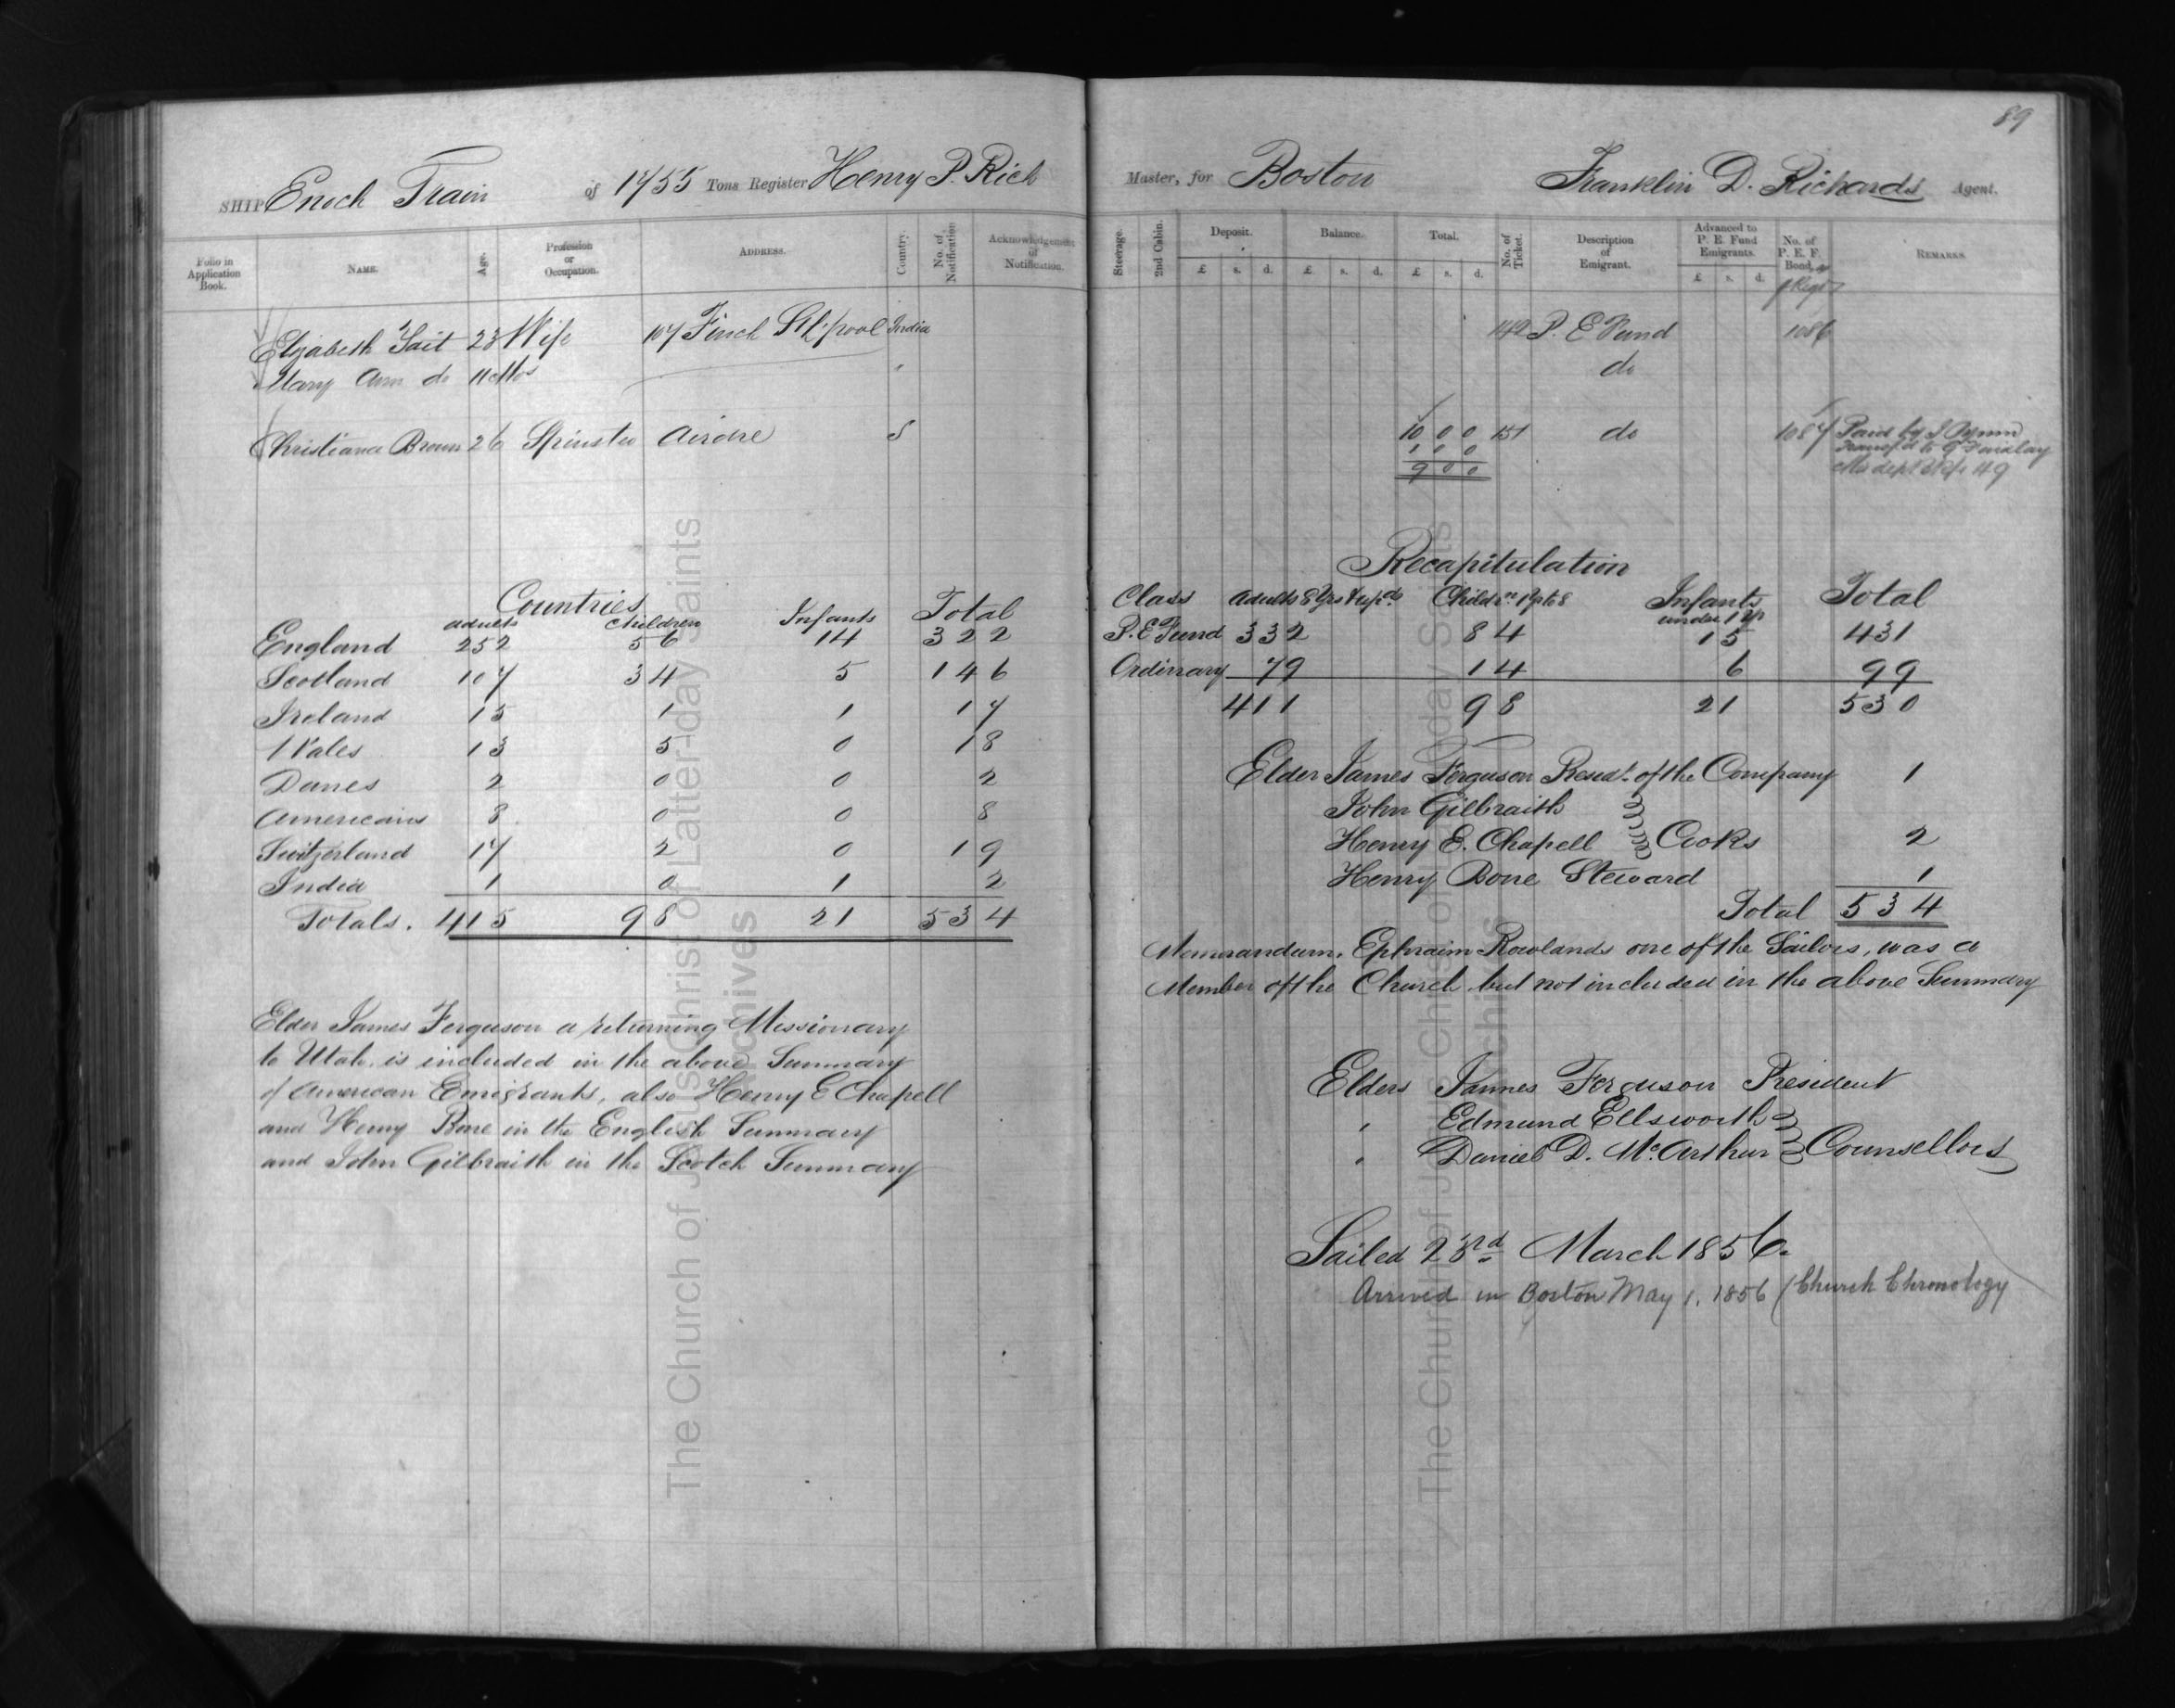 89
SHIP Enoch Train of 1455 Tons Register Henry P. Rich
Master, for Boston Franklin D. Richards Agent.
Folio in Application Book.
NAME.
Age.
Profession or Occupation.
ADDRESS.
Country.
No. of Notification
Acknowledgement of Notification.
Steerage.
2nd Cabin.
Deposit.
£ s. d.
Balance.
£ s. d.
Total.
£ s. d.
No. of Ticket.
Description of Emigrant.
Advanced to P. E. Fund Emigrants.
£ s. d.
No. of P. E. F. Bond,
REMARKS
Elizabeth Tait 23 Wife 107 Finch St L'pool India 142 P. E Fund 1086
Mary Ann do 11 Mos " do
Christiana Brown 26 Spinster Airdrie S 10 0 0 151 do 1087 Paid by J
1 0 0
9 0 0
Countries
adults children Infants Total
England 252 56 14 322
Scotland 107 34 5 146
Ireland 15 1 1 17
Wales 13 5 0 18
Danes 2 0 0 2
Americans 8 0 0 8
Switzerland 17 2 0 19
India 1 0 1 2
Totals. 415 98 21 534
Elder James Ferguson a returning Missionary
to Utah, is included in the above Summary
of American Emigrants, also Henry E Chapell
and Henry Bone in the English Summary
and John Gilbraith in the Scotch Summary
Recapitulation
Class Adults 8 Yrs & upds Childrn 1 yr to 8 Infants under 1 yr Total
P. E Fund 332 84 15 431
Ordinary 79 14 6 99
411 98 21 530
Elder James Ferguson Presdt. of the Company 1
John Gilbraith
Henry E. Chapell Cooks 2
Henry Bone Steward 1
Total 534
Memorandum. Ephraim Rowlands one of the Sailors, was a
Member of the Church but not included in the above Summary
Elders James Ferguson President
" Edmund Ellsworth
" Daniel D. McArthur Counsellors
Sailed 23rd March 1856.
Arrived in Boston May 1, 1856 (Church Chronology
The Church of Jesus Christ of Latter-day Saints
Archives
The Church of Jesus Christ of Latter-day Saints
Archives